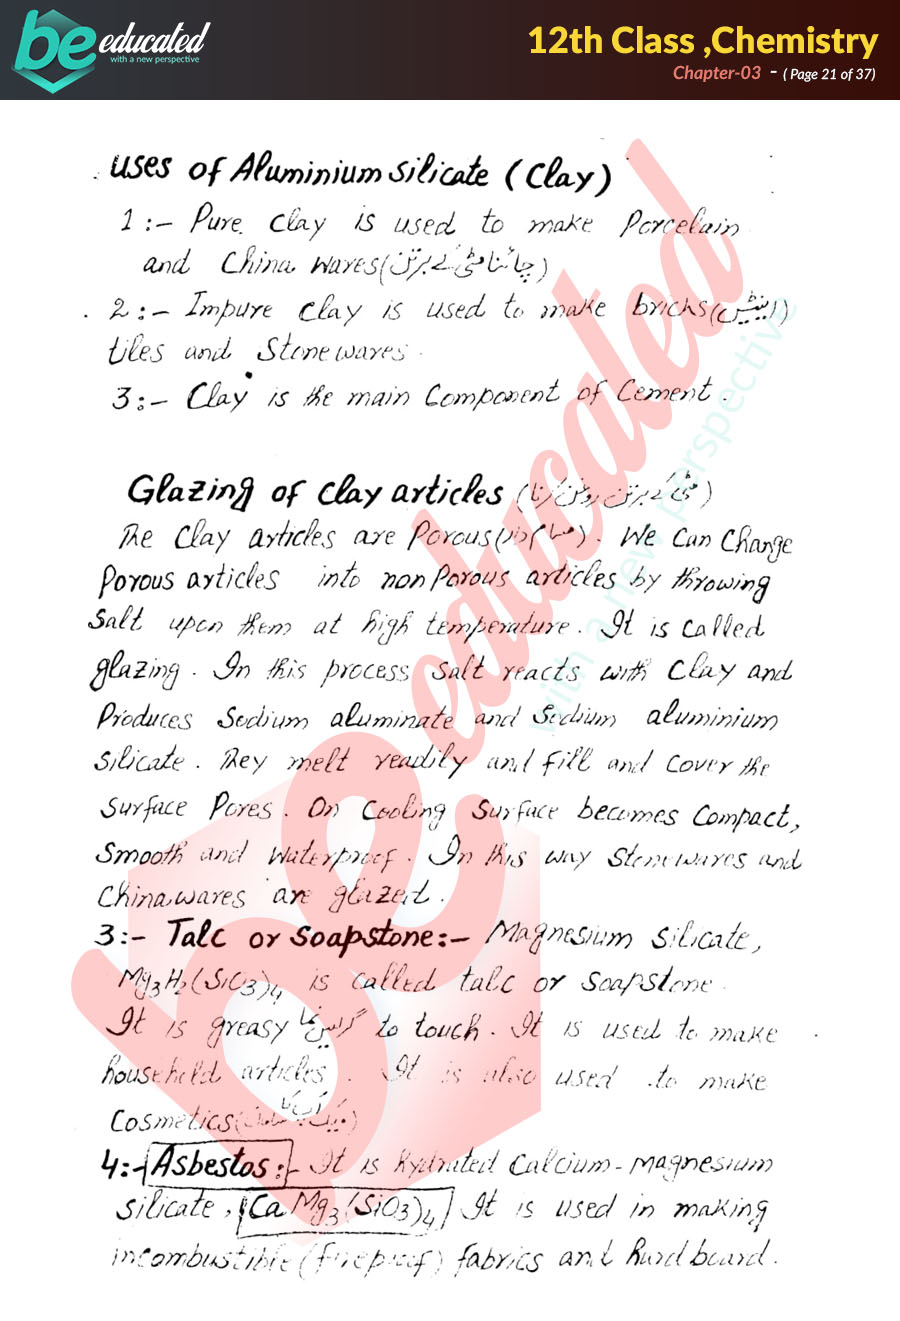 be educated
with a new perspective
12th Class ,Chemistry
Chapter-03 - ( Page 21 of 37)
Uses of Aluminium silicate (Clay)
1:- Pure Clay is used to make Porcelain
and China wares (چائنا مٹی کے برتن)
2:- Impure Clay is used to make bricks (اینٹیں)
tiles and Stonewares.
3:- Clay is the main Component of Cement.
Glazing of clay articles (مٹی کے برتن روغن کرنا)
The Clay articles are Porous (مسام دار). We Can Change
Porous articles into nonPorous articles by throwing
Salt upon them at high temperature. It is called
glazing. In this process salt reacts with clay and
Produces Sodium aluminate and Sodium aluminium
silicate. They melt readily and fill and cover the
Surface Pores. On Cooling surface becomes Compact,
Smooth and Waterproof. In this way stonewares and
Chinawares are glazed.
3:- Talc or soapstone:- Magnesium silicate,
Mg3H2(SiO3)4 is called talc or soapstone.
It is greasy گریس نما to touch. It is used to make
household articles. It is also used to make
Cosmetics (میک اپ کا سامان)
4:- Asbestos:- It is hydrated Calcium-magnesium
silicate, CaMg3(SiO3)4 It is used in making
incombustible (fireproof) fabrics and hardboard.
be educated
with a new perspective